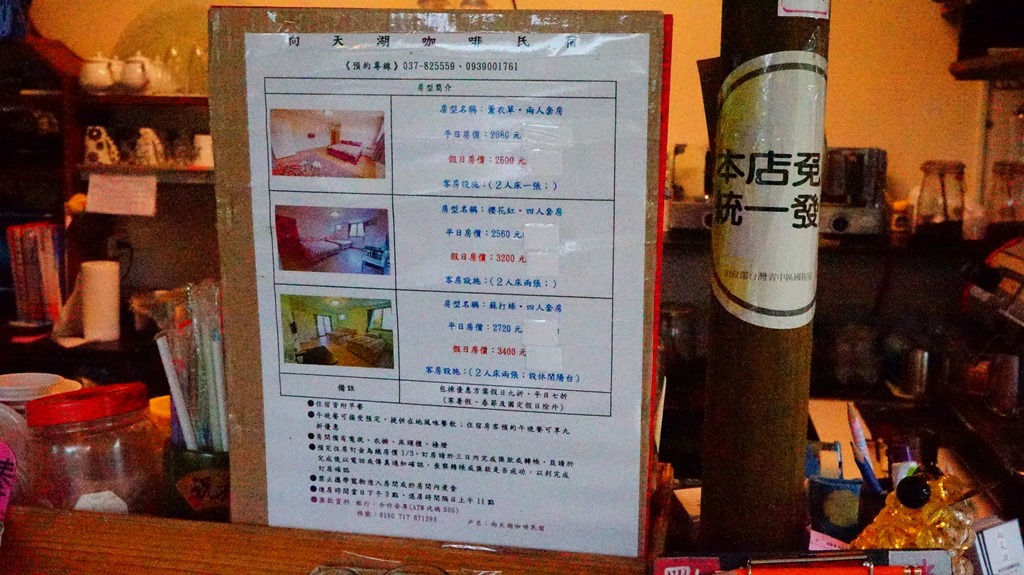 向天湖咖啡民宿
《預約專線》037-825559、0939001761
房型簡介
房型名稱：薰衣草‧兩人套房
平日房價：2080 元
假日房價：2600 元
客房設施：(2人床一張；)
房型名稱：櫻花紅‧四人套房
平日房價：2560 元
假日房價：3200 元
客房設施：(2人床兩張；)
房型名稱：蘇打綠‧四人套房
平日房價：2720 元
假日房價：3400 元
客房設施：(2人床兩張；設休閒陽台)
備註
包棟優惠方案假日九折，平日七折
(寒暑假、春節及國定假日除外)
●住宿皆附早餐
●午晚餐可接受預定，提供在地風味餐飲；住宿房客預約午晚餐可享九
折優惠
●房間備有電視、衣櫥、床頭櫃、檯燈
●預定住房訂金為總房價 1/3，訂房請於三日內完成匯款或轉帳，並請於
完成後以電話或傳真通知確認，查察轉帳或匯款是否成功，以利完成
訂房確認
●禁止攜帶寵物進入房間或於房間內煮食
●進房時間當日下午 3 點，退房時間隔日上午 11 點
●匯款資料 銀行：合作金庫(ATM 代碼 006)
帳號：0160 717 071293
戶名：向天湖咖啡民宿
本店免
統一發
財政部台灣省中區國稅局